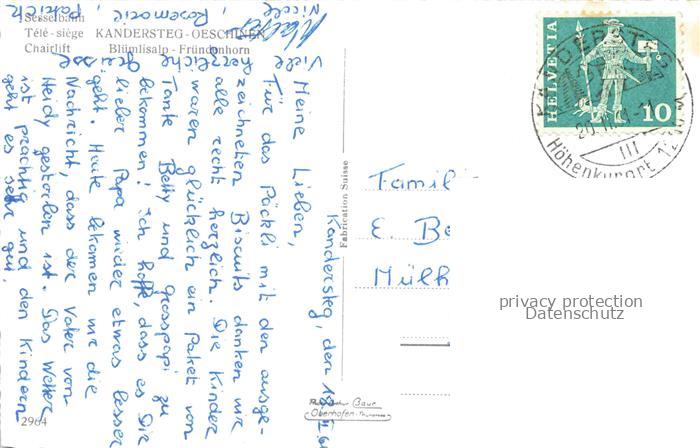 Sesselbahn
Télé-siège KANDERSTEG-OESCHINEN
Chairlift Blümlisalp - Fründenhorn
Kandersteg, den
Meine Lieben,
Für das Päckli mit den ausge-
zeichneten Biscuits danken wir
alle recht herzlich. Die Kinder
waren glücklich ein Paket von
Tante Betty und Grosspapi zu
bekommen! Ich hoffe, dass es Dir
lieber Papa wieder etwas besser
geht. Heute bekamen wir die
Nachricht, dass der Vater von
Heidy gestorben ist. Das Wetter
ist prächtig und den Kindern
geht es sehr gut.
Viele herzliche Grüsse
Walter
Nicole, Rosemarie, Patrick
Fabrication Suisse
Famil
E. Be
Mülh
HELVETIA
10
KANDERSTEG
Höhenkurort 12
III
privacy protection
Datenschutz
Baur
Oberhofen
2964